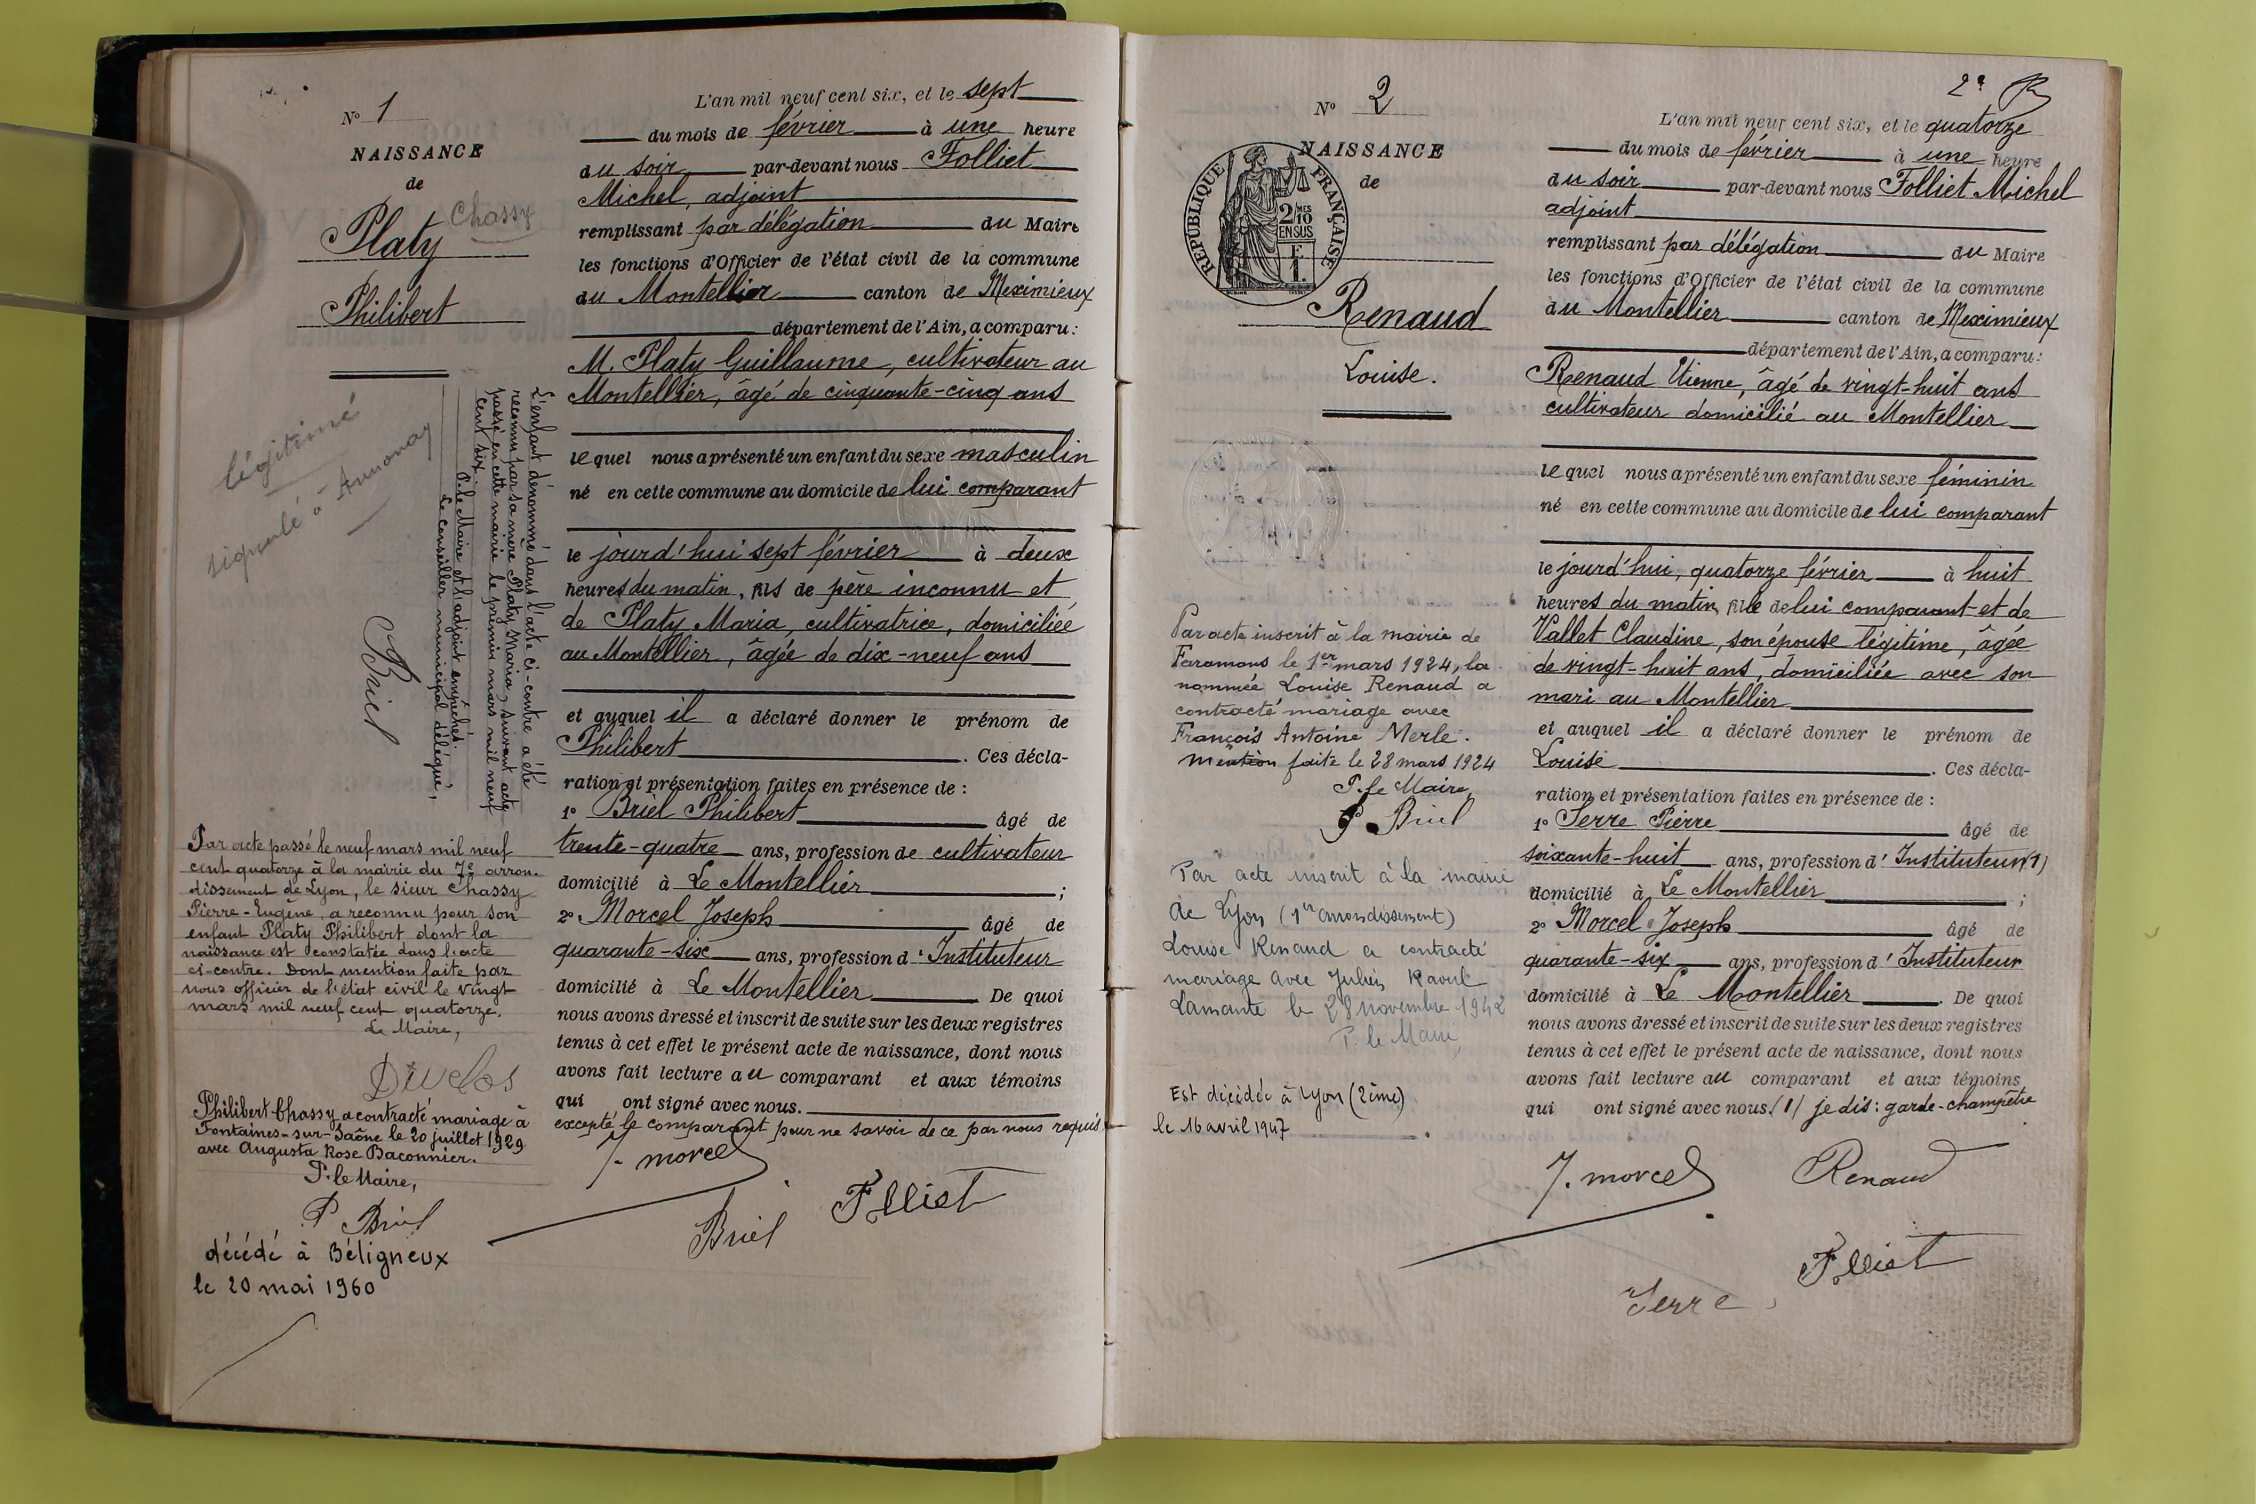 N° 1
NAISSANCE
de
Platy Chassy
Philibert
légitimé
signalé à Annonay
L'enfant dénommé dans l'acte ci-contre a été
reconnu par sa mère Platy Maria, suivant acte
passé en cette mairie le premier mars mil neuf
cent six.
P. le Maire et l'adjoint empêchés.
Le conseiller municipal délégué,
Briel
Par acte passé le neuf mars mil neuf
cent quatorze à la mairie du 7e arron-
dissement de Lyon, le sieur Chassy
Pierre-Eugène, a reconnu pour son
enfant Platy Philibert dont la
naissance est constatée dans l'acte
ci-contre. Dont mention faite par
nous officier de l'état civil le vingt
mars mil neuf cent quatorze.
Le Maire,
Duclos
Philibert Chassy a contracté mariage à
Fontaines-sur-Saône le 20 juillet 1929
avec Augusta Rose Baconnier.
P. le Maire,
P Briel
décédé à Béligneux
le 20 mai 1960
L'an mil neuf cent six, et le sept
du mois de février à une heure
du soir par-devant nous Folliet
Michel, adjoint
remplissant par délégation du Maire
les fonctions d'Officier de l'état civil de la commune
du Montellier canton de Meximieux
département de l'Ain, a comparu :
M. Platy Guillaume, cultivateur au
Montellier, âgé de cinquante-cinq ans
lequel nous a présenté un enfant du sexe masculin
né en cette commune au domicile de lui comparant
le jourd'hui sept février à deux
heures du matin, fils de père inconnu et
de Platy Maria, cultivatrice, domiciliée
au Montellier, âgée de dix-neuf ans
et auquel il a déclaré donner le prénom de
Philibert. Ces décla-
ration et présentation faites en présence de :
1° Briel Philibert âgé de
trente-quatre ans, profession de cultivateur
domicilié à Le Montellier ;
2° Morcel Joseph âgé de
quarante-six ans, profession d'Instituteur
domicilié à Le Montellier De quoi
nous avons dressé et inscrit de suite sur les deux registres
tenus à cet effet le présent acte de naissance, dont nous
avons fait lecture au comparant et aux témoins
qui ont signé avec nous.
excepté le comparant pour ne savoir de ce par nous requis
J. morcel
Briel
Folliet
2e
N° 2
NAISSANCE
de
RÉPUBLIQUE FRANÇAISE
2/10MES
EN SUS
F
1.
Renaud
Louise.
Par acte inscrit à la mairie de
Faramans le 1er mars 1924, la
nommée Louise Renaud a
contracté mariage avec
François Antoine Merle.
Mention faite le 28 mars 1924
P. le Maire,
P. Briel
Par acte inscrit à la mairie
de Lyon (1er arrondissement)
Louise Renaud a contracté
mariage avec Julien Raoul
Lamante le 28 novembre 1942
P. le Maire,
Est décédée à Lyon (2ème)
le 16 avril 1947
L'an mil neuf cent six, et le quatorze
du mois de février à une heure
du soir par-devant nous Folliet Michel
adjoint
remplissant par délégation du Maire
les fonctions d'Officier de l'état civil de la commune
du Montellier canton de Meximieux
département de l'Ain, a comparu :
Renaud Etienne, âgé de vingt-huit ans
cultivateur domicilié au Montellier
lequel nous a présenté un enfant du sexe féminin
né en cette commune au domicile de lui comparant
le jourd'hui, quatorze février à huit
heures du matin, fille de lui comparant et de
Vallet Claudine, son épouse légitime, âgée
de vingt-huit ans, domiciliée avec son
mari au Montellier
et auquel il a déclaré donner le prénom de
Louise. Ces décla-
ration et présentation faites en présence de :
1° Serre Pierre âgé de
soixante-huit ans, profession d'Instituteur (1)
domicilié à Le Montellier ;
2° Morcel Joseph âgé de
quarante-six ans, profession d'Instituteur
domicilié à Le Montellier. De quoi
nous avons dressé et inscrit de suite sur les deux registres
tenus à cet effet le présent acte de naissance, dont nous
avons fait lecture au comparant et aux témoins
qui ont signé avec nous. (1) je dis : garde-champêtre
J. morcel
Renaud
Folliet
Serre